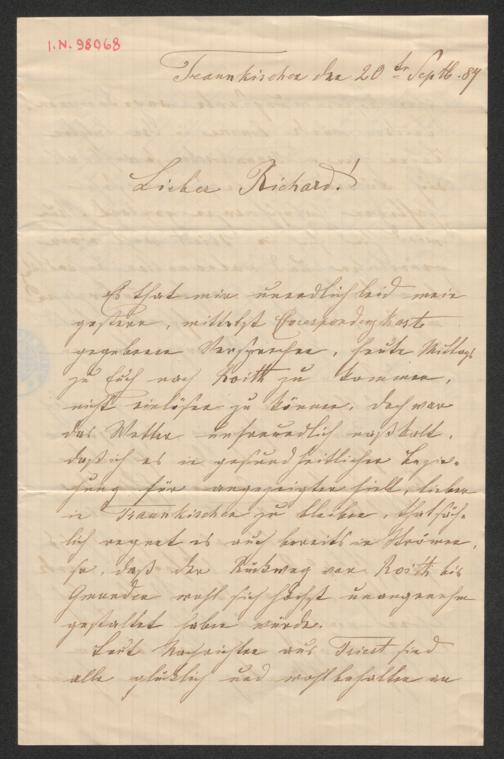 I.N. 98068
Traunkirchen den 20ten Septb. 89
Lieber Richard!
Es that mir unendlich leid mein
gestern, mittelst Correspondenzkarte
gegebenes Versprechen, heute Mittags
zu Euch nach Roith zu kommen,
nicht einlösen zu können, doch war
das Wetter unfreundlich naßkalt,
daß ich es in gesundheitlicher Bezie-
hung für angezeigter hielt, lieber
in Traunkirchen zu bleiben, thatsäch-
lich regnet es auch bereits in Strömen,
so, daß der Rückweg von Roith bis
Gmunden wohl sich höchst unangenehm
gestaltet haben würde.
Laut Nachrichten aus Triest sind
alle glücklich und wohlbehalten an